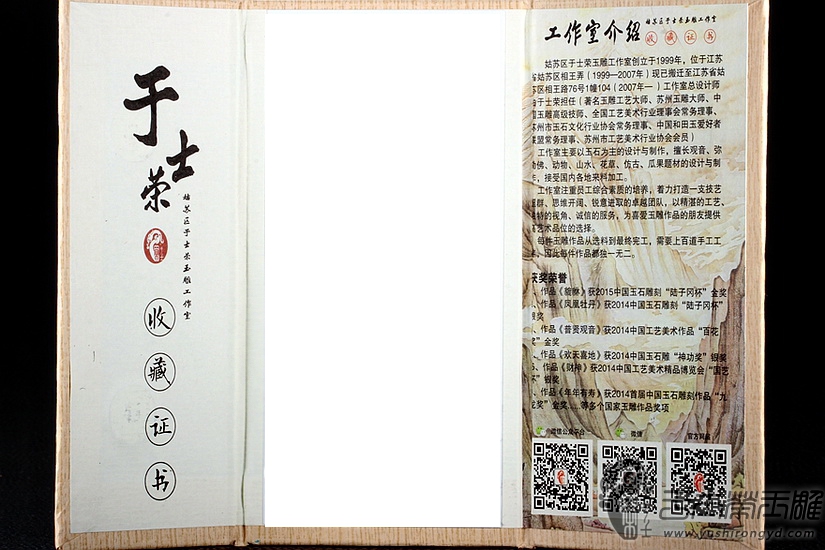 于士荣
姑苏区于士荣玉雕工作室
收藏证书
工作室介绍
姑苏区于士荣玉雕工作室
收藏证书
姑苏区于士荣玉雕工作室创立于1999年，位于江苏
省姑苏区相王弄（1999—2007年）现已搬迁至江苏省姑
苏区相王路76号1幢104（2007年—）工作室总设计师
由于士荣担任（著名玉雕工艺大师、苏州玉雕大师、中
国玉雕高级技师、全国工艺美术行业理事会常务理事、
苏州市玉石文化行业协会常务理事、中国和田玉爱好者
联盟常务理事、苏州市工艺美术行业协会会员）
工作室主要以玉石为主的设计与制作，擅长观音、弥
勒佛、动物、山水、花草、仿古、瓜果题材的设计与制
作，接受国内各地来料加工。
工作室注重员工综合素质的培养，着力打造一支技艺
超群、思维开阔、锐意进取的卓越团队，以精湛的工艺、
独特的视角、诚信的服务，为喜爱玉雕作品的朋友提供
高艺术品位的选择。
每件玉雕作品从选料到最终完工，需要上百道手工工
序，因此每件作品都独一无二。
获奖荣誉
、作品《貔貅》获2015中国玉石雕刻“陆子冈杯”金奖
、作品《凤凰牡丹》获2014中国玉石雕刻“陆子冈杯”
银奖
、作品《普贤观音》获2014中国工艺美术作品“百花
奖”金奖
、作品《欢天喜地》获2014中国玉石雕“神功奖”银奖
、作品《财神》获2014中国工艺美术精品博览会“国艺
杯”银奖
、作品《年年有寿》获2014首届中国玉石雕刻作品“九
龙奖”金奖......等多个国家玉雕作品奖项
微信公众平台
微信
官方网站
于士荣玉雕
www.yushirongyd.com